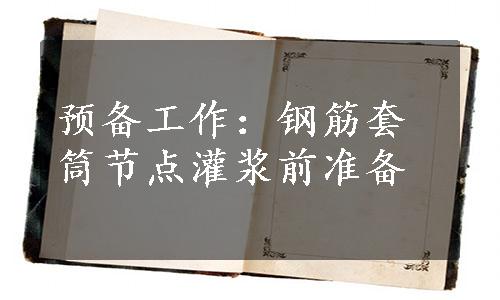 预备工作：钢筋套
筒节点灌浆前准备